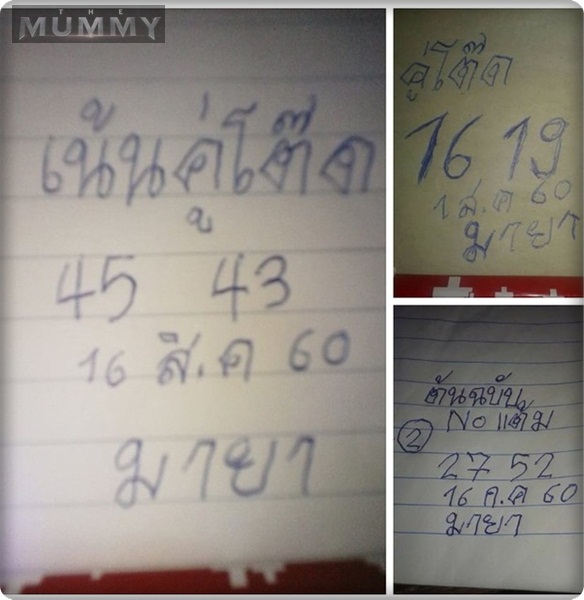 THE
MUMMY
เน้นคู่โต๊ด
45 43
16 สิ.ค 60
มายา
คู่โต๊ด
16 19
1 ส.ค 60
มายา
ต้นฉบับ
No แต้ม
2
27 52
16 ก.ค 60
มายา